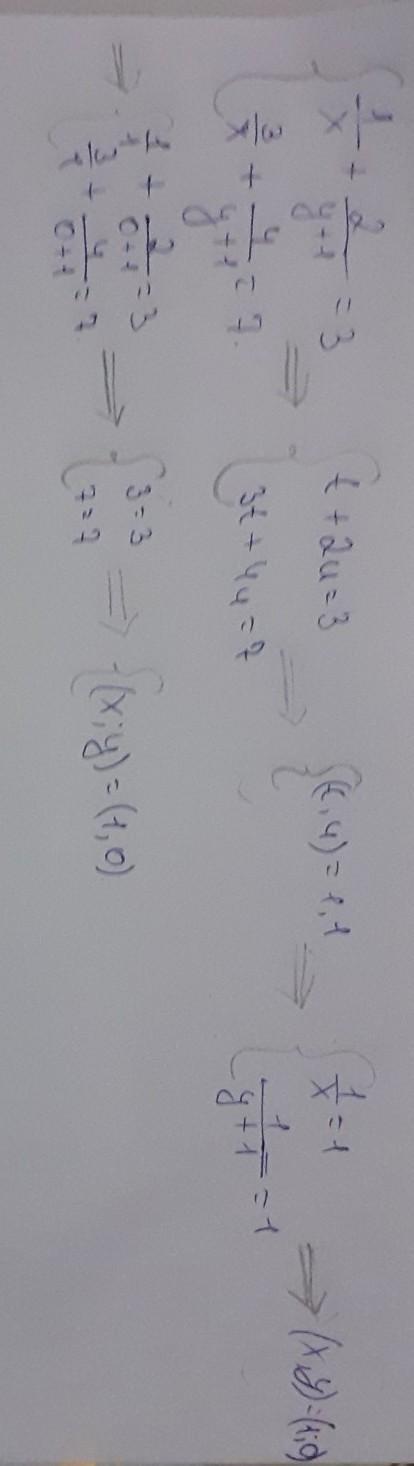 { 1/x + 2/(y+1) = 3 ; 3/x + 4/(y+1) = 7. ⇒ { t + 2u = 3 ; 3t + 4u = 7 ⇒ { (t, u) = 1, 1 ⇒ { 1/x = 1 ; 1/(y+1) = 1 ⇒ (x, y) = (1; 0)
⇒ { 1/1 + 2/(0+1) = 3 ; 3/1 + 4/(0+1) = 7. ⇒ { 3 = 3 ; 7 = 7 ⇒ { (x; y) = (1, 0)